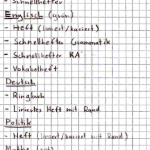 - Schnellhefter
Englisch (grün)
- Heft (liniert/kariert)
- Schnellhefter Grammatik
- Schnellhefter KA
- Vokabelheft
Deutsch
- Ringbuch
- Liniertes Heft mit Rand
Politik
- Heft (liniert/kariert mit Rand)
Mathe